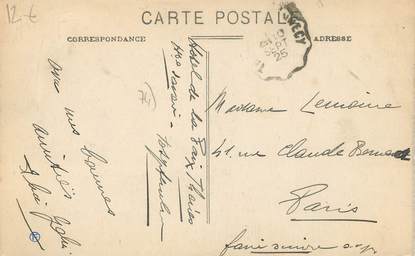 12 €
CARTE POSTALE
CORRESPONDANCE
ADRESSE
25
Hôtel de la Paix Thônes
Hte Savoie -
avec mes bonnes
amitiés
74
Madame Lemoine
41, rue Claude Bernard
Paris
faire suivre s.v.p.